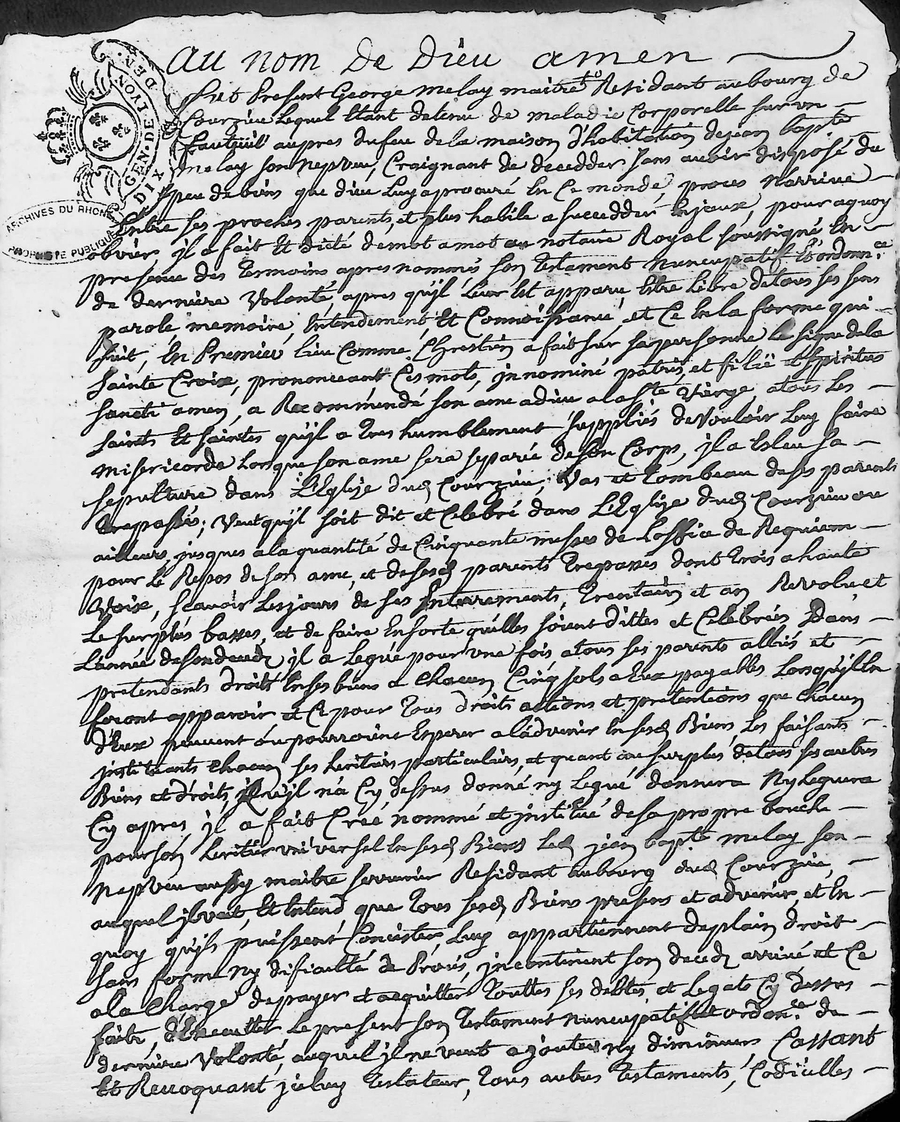 GEN. DE LYON
DIX DEN
ARCHIVES DU RHONE
PUBLIQUE
au nom De Dieu amen
fut Present George Melay maitre Residant au bourg de
Courzieu lequel Etant detenu de maladie Corporelle sur un
fauteuil aupres du feu de la maison d'habitation de jean bapte
melay son nepveu, Craignant de decedder sans avoir disposé du
peu de biens que dieu luy a procuré En ce monde, proces Narrive
Entre ses proches parents, et plus habile a succedder Enjceux, pour a quoy
obvier, il a fait Et dicté de mot a mot au notaire Royal soussigné En
presence des temoins apres nommés son testament nuncupatif et ordonnce
de derniere Volonté, apres quil leur Est apparu Etre libre de tous ses sens
parole memoire, Entendement Et Connoissance, et Ce En la forme qui
suit, En Premier lieu Comme Chrestien a fait sur sa personne le signe de la
sainte Croix, prononceant Ces mots, in nominé patris, et filiï Et spiritus
sancti amen, a Recommendé son ame a dieu a la ste Vierge, a tous les
saints Et saintes quil a tres humblement suppliés de Vouloir luy faire
misericorde lorsque son ame sera separée de son Corps, il a Esleu sa
sepulture dans l'Eglise dud Courzieu, Vas et tombeau de ses parents
trepassés; Veut quil soit dit et Celebré dans l'Eglize dud Courzieu ou
ailleurs, jusques a la quantité de Cinquante messes de l'office de Requiem
pour le Repos de son ame, et de sesd parents trepasses dont trois a haute
Voix, scavoir les jours de ses Enterrements, trentain et an Revolu, et
le surplus basses, et de faire En sorte quelles soient dittes et Celebrées Dans
l'année de son deced, il a legué pour une fois a tous ses parents alliés et
pretendants droits En ses biens a Chacun Cinq sols a Eux payables lorsquils En
feront apparoir et Ce pour tous droits actions et pretentions que chacun
d'Eux peuvent ou pourroient Esperer a l'advenir En sesd Biens, les faisants
instituants Chacun ses heritiers particuliers, et quant au surplus de tous ses autres
Biens et droits quil n'a Cy dessus donné ny legué donnera Ny leguera
Cy apres, il a fait Créé nommé et institué de sa propre bouche
pour son heritier universel En sesd Biens led jean bapte melay son
Nepveu aussy maitre serrurier Residant au bourg dud Courzieu,
auquel il veut, Et Entend que tous sesd Biens presens et advenir, et En
quoy quils puissent Concister, luy appartiennent de plain droit
sans forme ny dificulté de Procés, incontinent son deced arrivé et Ce
a la Charge de payer et acquitter touttes ses debtes et legats Cy dessus
faits, d'Executter le present son testament nuncupatif et ordonce de
derniere Volonté, auquel il ne veut ajouter ny diminuer Cassant
Et Revoquant iceluy testateur, tous autres testaments, Codicilles